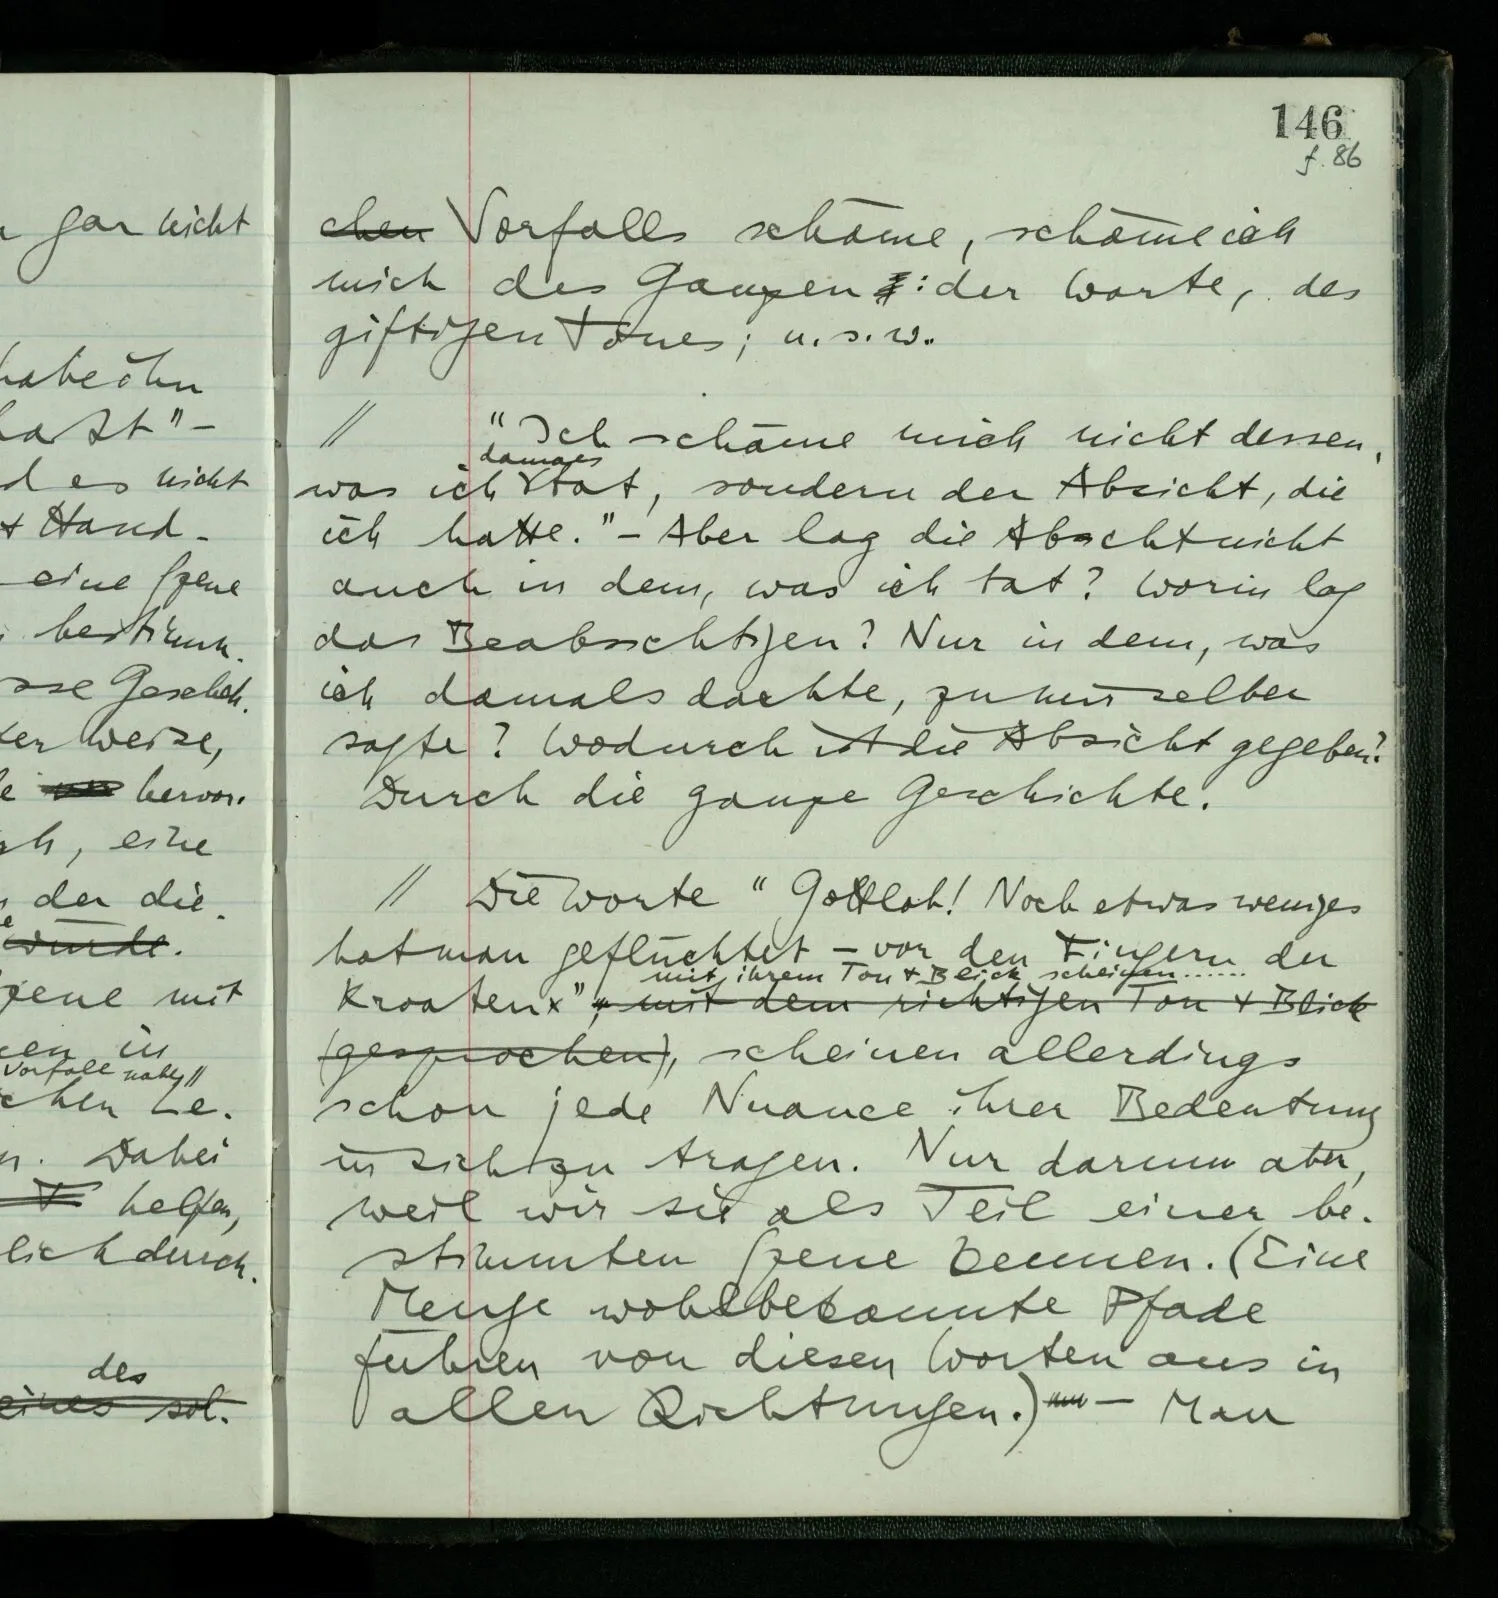 n gar nicht
habe ihn
haßt" –
d es nicht
+ Hand-
eine Szene
bestimm-
sse Geschich-
ter weise,
hervor-
ch, eine
der die-
würde.
Szene mit
in
Vorfall nahe //
chen Le-
n. Dabei
helfen,
lich durch-
des
eines sol-
146
f. 86
chen Vorfalls schäme, schäme ich
mich des Ganzen: der Worte, des
giftigen Tones, u.s.w..
// "Ich schäme mich nicht dessen,
damals
was ich tat, sondern der Absicht, die
ich hatte." – Aber lag die Absicht nicht
auch in dem, was ich tat? Worin lag
das Beabsichtigen? Nur in dem, was
ich damals dachte, zu mir selber
sagte? Wodurch ist die Absicht gegeben?
Durch die ganze Geschichte.
// Die Worte "Gottlob! Noch etwas weniges
hat man geflüchtet – vor den Fingern der
mit ihrem Ton & Blick scheinen......
Kroaten", mit dem richtigen Ton & Blick
(gesprochen), scheinen allerdings
schon jede Nuance ihrer Bedeutung
in sich zu tragen. Nur darum aber,
weil wir sie als Teil einer be-
stimmten Szene kennen. (Eine
Menge wohlbekannte Pfade
führen von diesen Worten aus in
allen Richtungen.) – Man